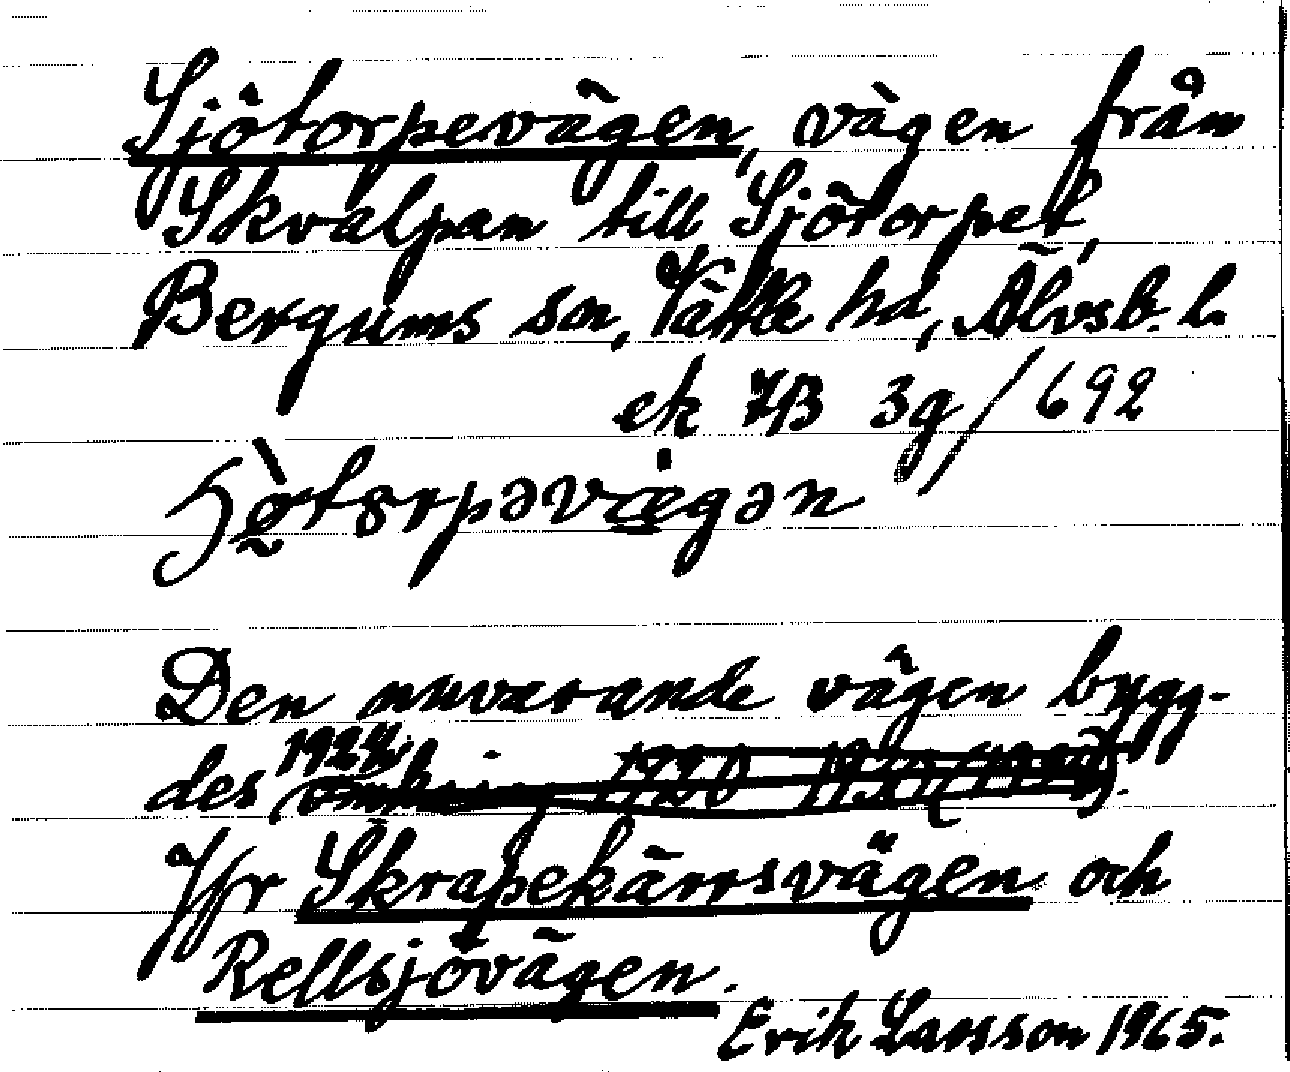 Sjötorpevägen, vägen från
Skvalpan till Sjötorpet,
Bergums sn, Vättle hd, Älvsb. l.
ek 7B 3g/692
Den nuvarande vägen bygg-
des 1924 omkring 1920
Jfr Skrapekärrsvägen och
Rellsjövägen.
Erik Larsson 1965.